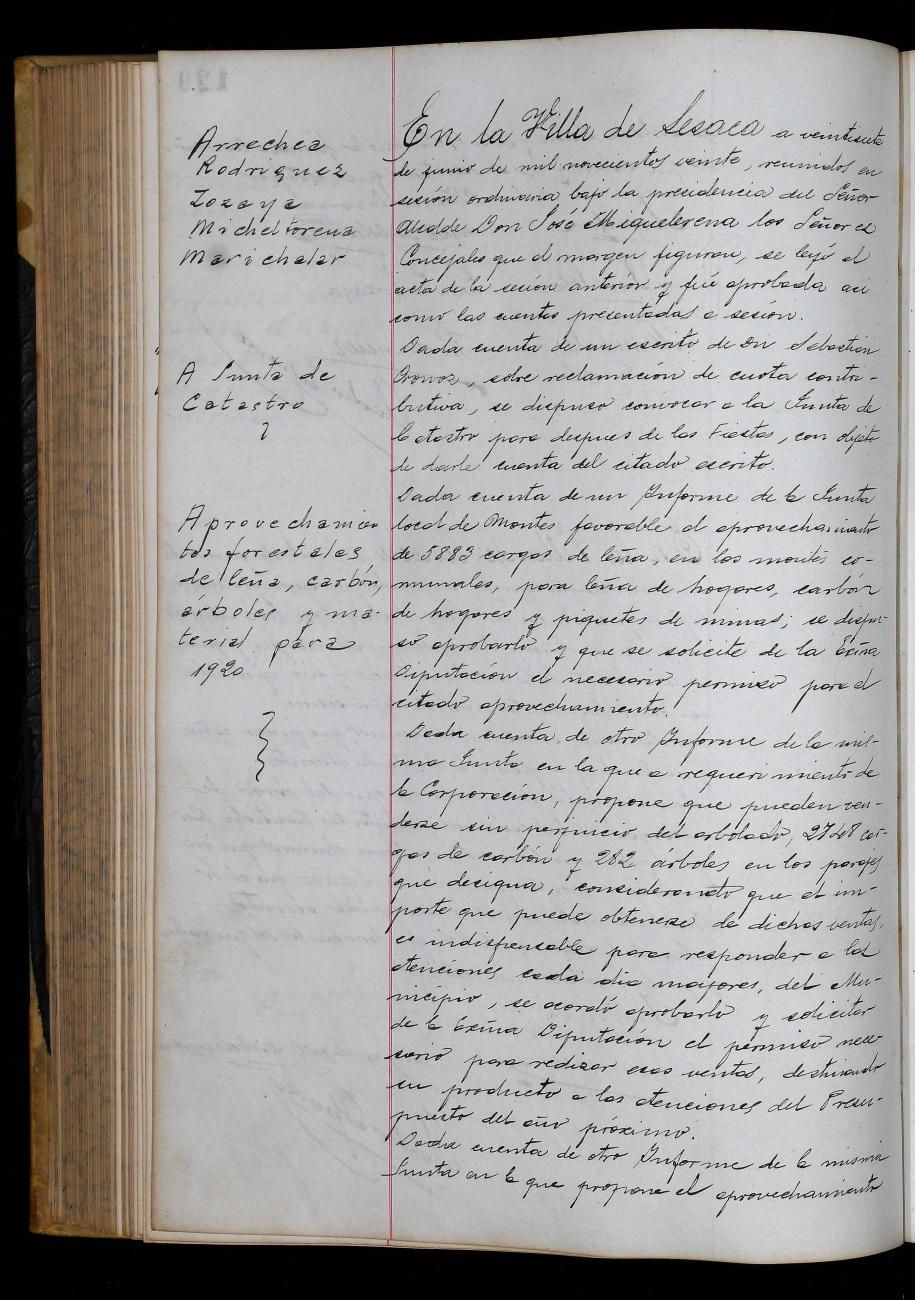 Arrechea
Rodriguez
Lozaya
Micheltorena
Marichalar
A Junta de
Catastro
Aprovechamien
tos forestales
de leña, carbón,
árboles y ma-
terial para
1920
En la Villa de Lesaca a veintisiete
de junio de mil novecientos veinte, reunidos en
sesión ordinaria bajo la presidencia del Señor
Alcalde Don José Miguelerena los Señores
Concejales que al margen figuran, se leyó el
acta de la sesión anterior y fué aprobada asi
como las cuentas presentadas a sesión.
Dada cuenta de un escrito de Dn Sebastian
sobre reclamacion de cuota contri-
butiva, se dispuso convocar a la Junta de
Catastro para despues de las Fiestas, con objeto
de darle cuenta del citado escrito.
Dada cuenta de un Informe de la Junta
local de Montes favorable al aprovechamiento
de 5883 cargas de leña, en los montes co-
munales, para leña de hogares, carbón
de hogares y piquetes de minas; se dispu-
so aprobarlo y que se solicite de la Exma
Diputación el necesario permiso para el
citado aprovechamiento.
Dada cuenta de otro Informe de la mis-
ma Junta en la que a requerimiento de
la Corporación, propone que pueden ven-
derse sin perjuicio del arbolado, 2748 car-
gas de carbón y 282 árboles en los parajes
que designa, considerando que el im-
porte que puede obtenerse de dichas ventas,
es indispensable para responder a las
atenciones cada dia mayores, del Mu-
nicipio, se acordó aprobarlo y solicitar
de la Exma Diputación el permiso nece-
sario para realizar esas ventas, destinando
su producto a las atenciones del Presu-
puesto del año próximo.
Dada cuenta de otro Informe de la misma
Junta en la que propone el aprovechamiento